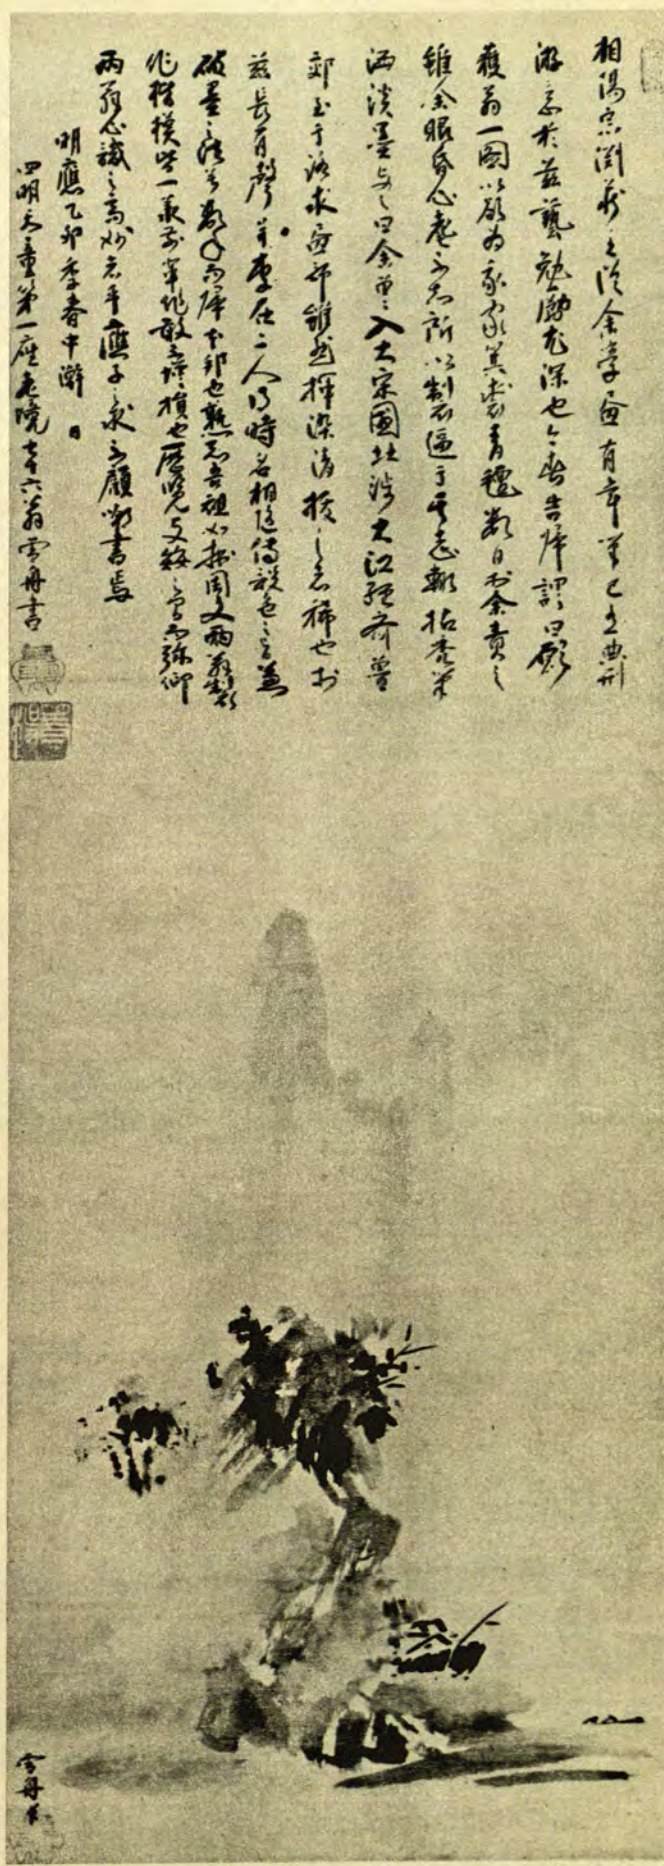 相陽宗淵蔵主從余學畫有年筆已有典刑
游意於茲藝勉勵尤深也今春告歸謂曰願
獲翁一圖以欲為我家箕裘青氈數日於余責之
雖余眼昏心耄不知所以製不逼于其志輙拈禿筆
洒淡墨與之曰余曽入大宋國北渉大江経齊魯
郊至于洛求畫師雖然揮染清拔之者稀也於
茲長有聲并李在二人得時名相隨傳設色之旨兼
破墨之法兮數年而歸本邦也熟知吾祖如拙周文兩翁製
作楷模皆一承前輩作敢不増損也歴覽支倭之間而弥仰
兩翁心識之高妙者乎應子之求不顧嘲書焉
明應乙卯季春中澣日
四明天童第一座老境七十六翁雪舟書
雪舟筆